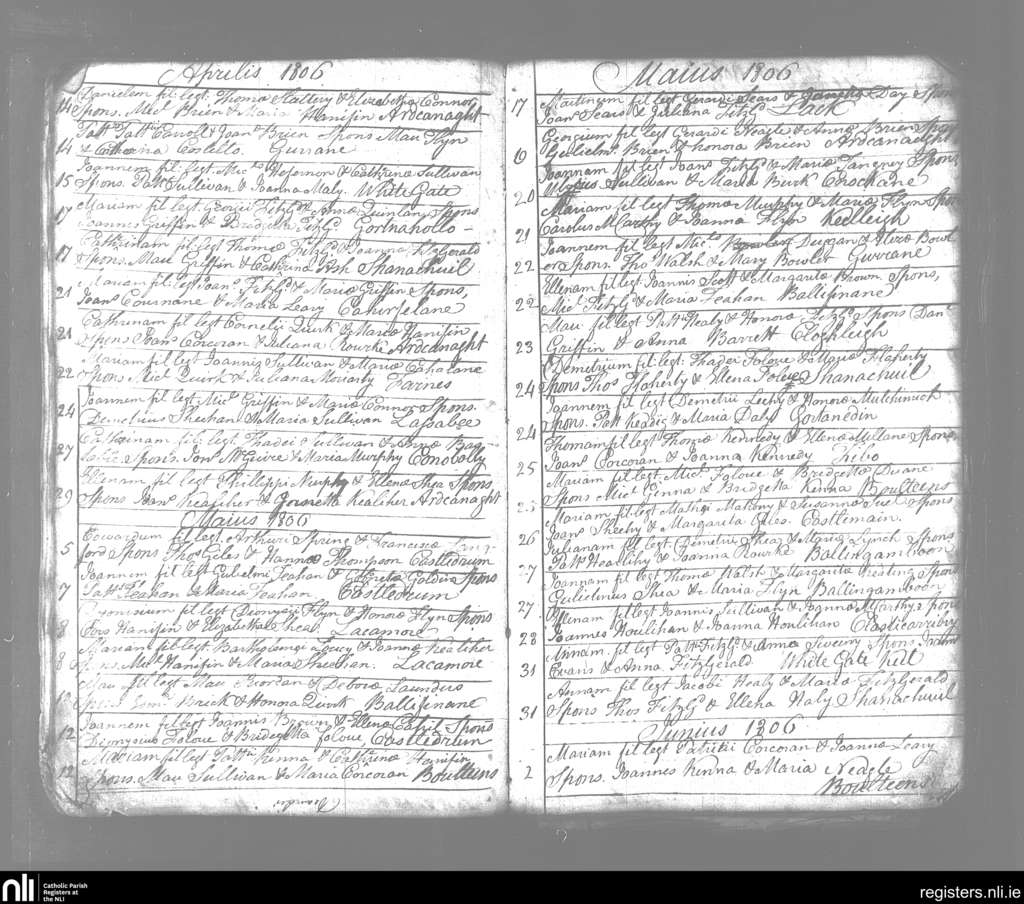 Aprilis 1806
Danielem fil legt. Thoma Slattery & Elizabetha Connor
14 Spons. Micl Brien & Maria Hanifin Ardcanaght
Patt Carroll & Joana Brien Spons Mau Flyn
14 & Catherina Costello. Gurrane
Joannem fil legt Mic Hefernon & Cathrina Sullivan
15 Spons. Patt Sullivan & Joanna Maly. White Gate
17 Mariam fil legt Georgii Fitzgd & Anna Quinlan Spons
Joannes Griffin & Bridgetta Fitzgd Gortnahollo
Cathrinam fil legt Thoma Fitzgd & Joanna Fitzgerald
17 Spons. Mau Griffin & Cathrina Ash Shanachuil
Mariam fil legt Joans Fitzgd & Maria Griffin Spons,
21 Joans Cournane & Maria Leary Caherfelane
Cathrinam fil legt Cornelii Quirk & Maria Hanifin
21 Spons Joans Corcoran & Juliana Rourke Ardcanaght
Mariam fil legt Joannis Sullivan & Maria Cahalane
22 Spons Micl Quirk & Juliana Moriarty Farnes
Joannem fil legt Micl Griffin & Maria Connor Spons.
24 Demetrius Sheehan & Maria Sullivan Lassabee
Cathrinam fil legt Thadei Sullivan & Anna
27 Spons. Joans McGuire & Maria Murphy Conobolly
Ellenam fil legt Phillippi Murphy & Ellena Shea Spons,
29 Spons Joans Kealiher & Kealiher Ardcanaght
Maius 1806
Edwardum fil legt. Arthuri Spring & Francisca Lang-
5 ford Spons Thos Giles & Hanna Thompson Castledrum
Joannem fil legt Gulielmi Teahan & Goldin Spons
7 Patt Teahan & Maria Teahan. Castledrum
Dyonisium fil legt Dionysii Flyn & Honora Flyn Spons
8 Hanifin & Elizabetha Shea. Lacamore
Mariam fil legt Bartholemei Lucy & Joanna Kealiher
8 Spons Micl Hanifin & Maria Sheehan. Lacamore
Mau fil legt Mau Reordan & Debora Launders
Spons Brick & Honora Quirk Ballifinane
Joannem fil legt Joannis Brown & Ellena Spons
12 Dionysius Foloue & Bridgetta foloue Castledrum
Mariam fil legt Patt Kenna & Cathrina Hanifin
12 Spons. Mau Sullivan & Maria Corcoran Boulteens
Maius 1806
17 Martinum fil legt Gerardi Sears & Day Spons
Joans Sears & Juliana Fitzg Lack
Georgium fil legt Gerardi Neagle & Anna Brien Spons
Gulielms Brien & honora Brien Ardcanaght
Joannam fil legt Joans Fitzgd & Maria Tangney Spons
20 Sullivan & Maria Burk Croskane
Mariam fil legt Thoma Murphy & Maria Flyn Spons
21 Carolus McCarthy & Joanna Flyn Keelleigh
Joannem fil legt Micl Duggan & Bowl
22 er Spons. Thos Walsh & Mary Bowler Gurrane
Ellenam fil legt Joannis Scott & Margarita Brown Spons,
22 Micl Fitzgd & Maria Teahan Ballifinane
Mau. fil legt Patt Healy & Honora Fitzgd Spons Danl
23 Griffin & Anna Barrett Cloghleigh
Demetrium fil legt. Thadei Foloue & Maria Flaherty
24 Spons Thos Flaherty & Ellena Foloue Shanachuil
Joannem fil legt Demetrii Leehy & Honora Mulchinich
24 Spons. Patt Keadig & Maria Daly Gotanedin
Thomam fil legt Thoma Kennedy & Ellena Mullane Spons
25 Joans Corcoran & Joanna Kennedy
Mariam fil legt. Micl Foloue & Bridgetta Duane
Spons Micl Genna & Bridgetta Kenna Boulteens
Mariam fil legt Mahony & Susanna Spons
Joans Sheehy & Margarita Giles. Castlemain.
26 Julianam fil legt Demetrii Shea & Maria Lynch Spons
Patt Healihy & Joanna Rourke Ballingamboon
27 Joannam fil legt Thoma Walsh & Margarita Keating Spons
Gulielmus Shea & Maria Flyn Ballingamboon
27 Ellenam fil legt Joannis Sullivan & Joanna McCarthy spons
28 Joannes Houlihan & Joanna Houlihan
Annam. fil legt Patt Fitzgd & Anna Sweeny Spons
31 Evans & Anna Fitzgerald White Gate
Annam fil legt Jacobi Healy & Maria Fitzgerald
31 Spons Thos Fitzgd & Ellena Haly Shanachuil
Junius 1806
Mariam fil legt Patricii Corcoran & Joanna Leary
2 Spons. Joannes Kenna & Maria Neagle
Boulteens
nli Catholic Parish Registers at the NLI
registers.nli.ie